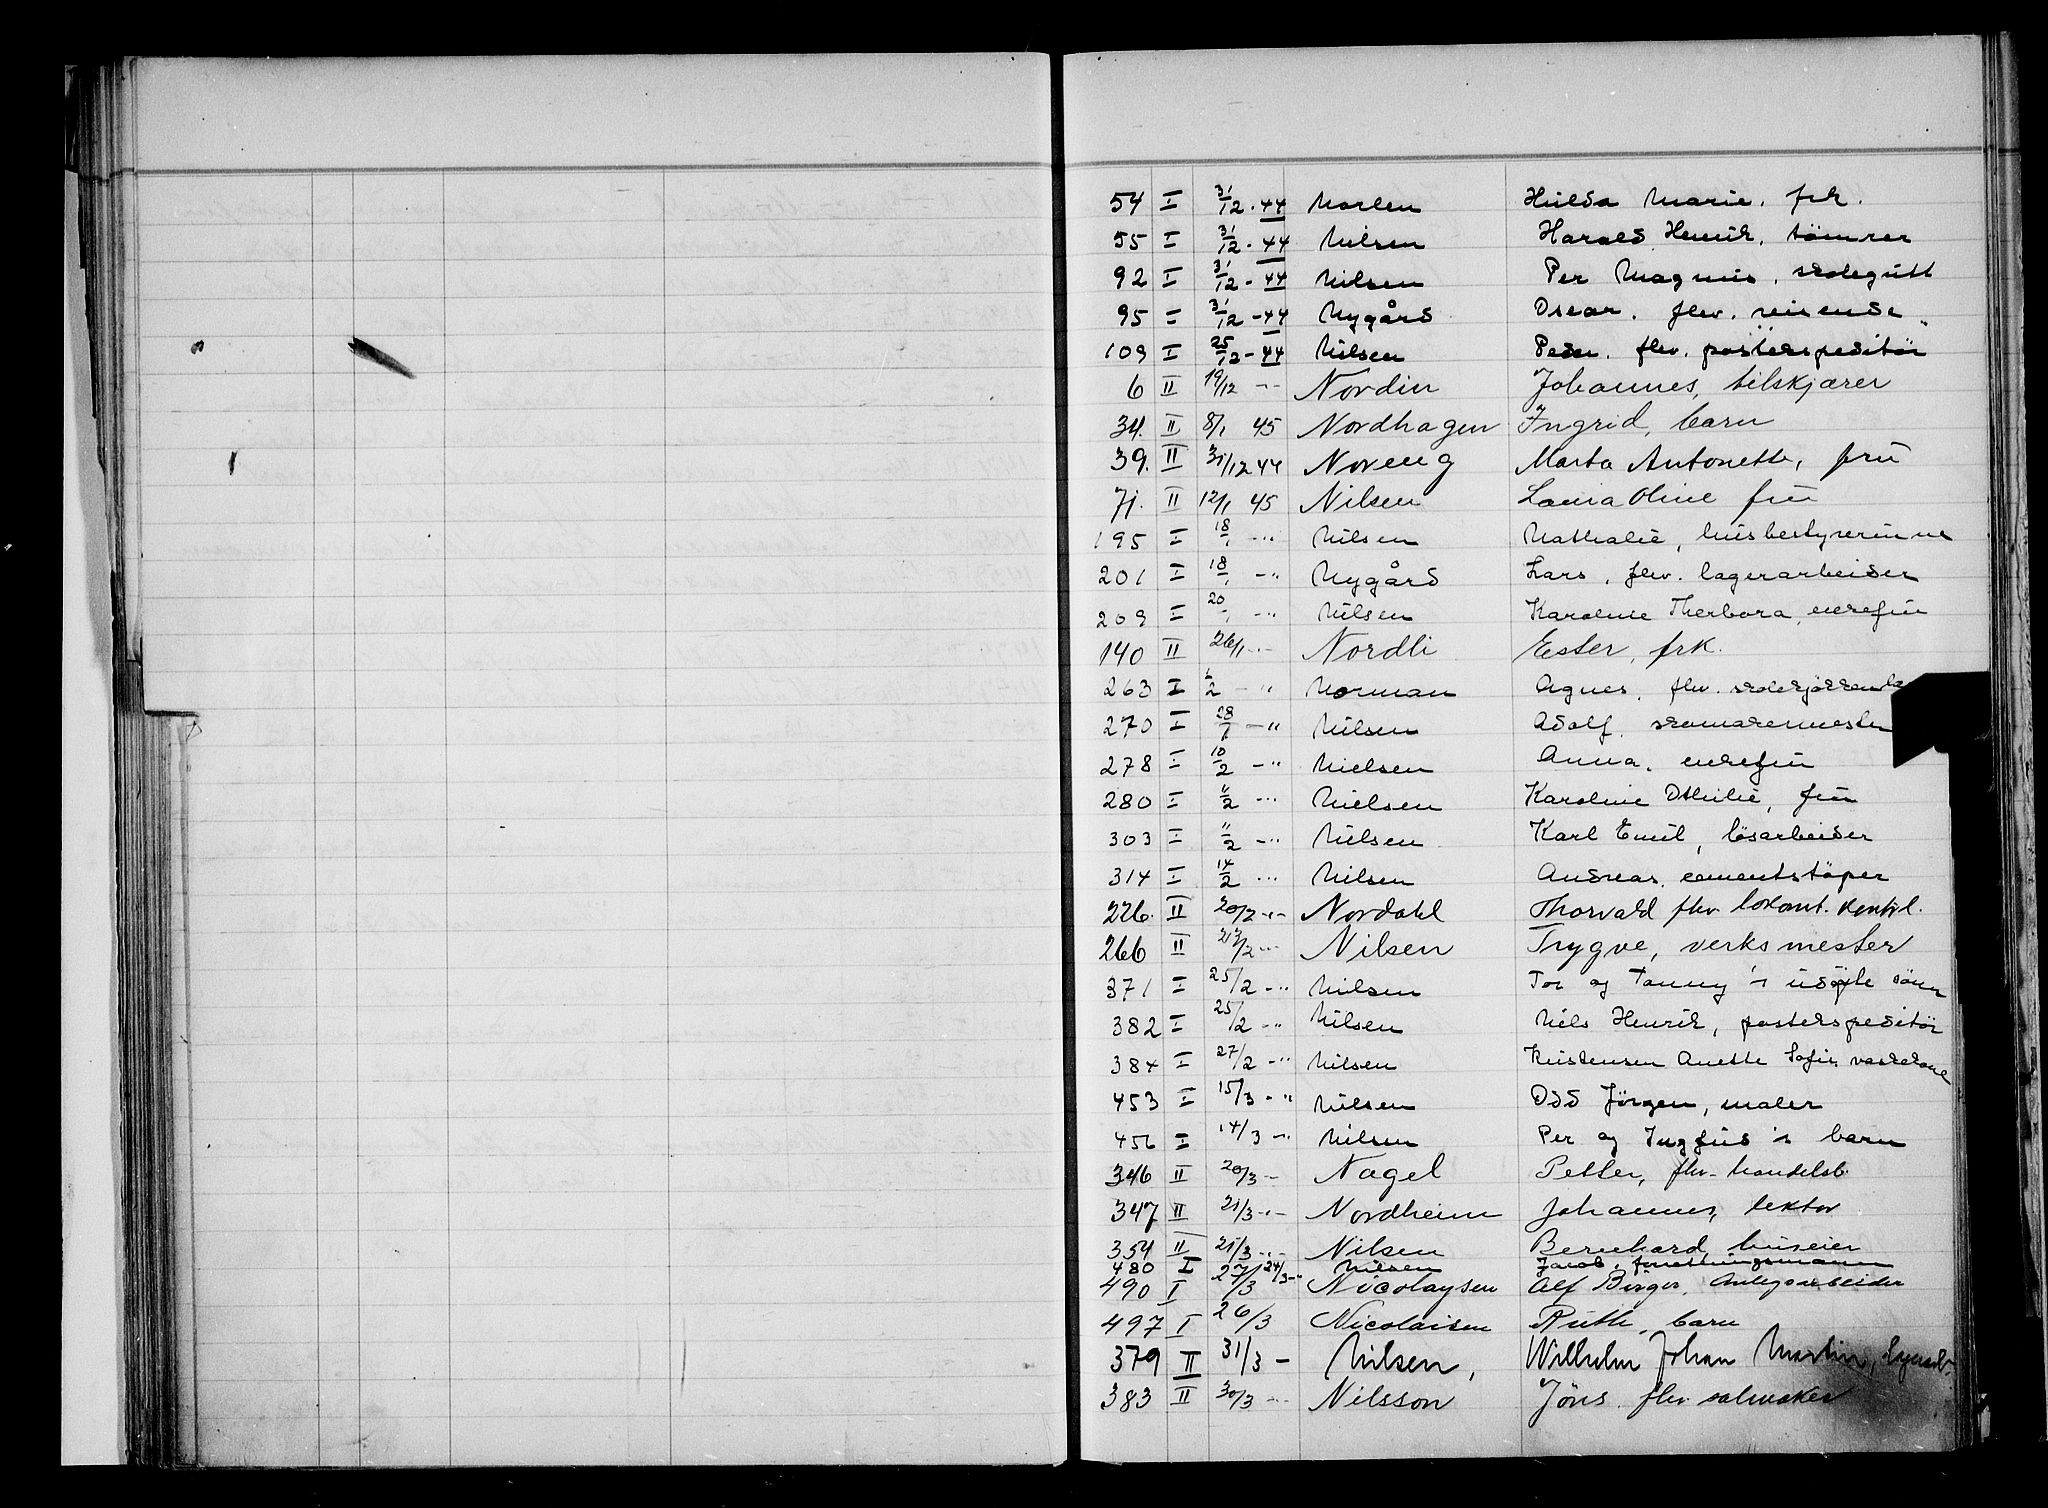 54 I 31/12 - 44 Norlen Hilda Marie. frk.
55 I 31/12 - 44 Nilsen Harald Henrik, tömrer
92 I 31/12 - 44 Nilsen Per Magnus, skolegutt
95 I 31/12 - 44 Nygård Oscar. fhv. reisende
109 I 25/12 - 44 Nilsen Peder. fhv. postekspeditör
6 II 19/12 -"- Nordin Johannes, tilskjærer
34. II 8/1 45 Nordhagen Ingrid, barn
39. II 31/12 44 Noreng Marta Antonette, fru
71. II 12/1 45 Nilsen Laura Oline fru
195 I 18/1 -"- Nilsen Nathalie, husbestyrerinne
201 I 18/1 -"- Nygård Lars, fhv. lagerarbeider
209 I 20/1 -"- Nilsen Karoline Therbora, enkefru
140 II 26/1 -"- Nordli Ester, frk.
263 I 1/2 -"- Norman Agnes, fhv.
270 I 28/1 -"- Nilsen Adolf. skomakermester
278 I 10/2 -"- Nielsen Anna. enkefru
280 I 11/2 -"- Nielsen Karoline Othilie, fru
303 I 11/2 -"- Nilsen Karl Emil, lösarbeider
314 I 14/2 -"- Nilsen Andreas. cementstöper
226. II 20/2 -"- Nordahl Thorvald fhv. lokomt. kontrl.
266 II 23/2 -"- Nilsen Trygve, verksmester
371 I 25/2 -"- Nilsen Tor og Fanny's udöpte sönn
382 I 25/2 -"- Nilsen Nils Henrik, postekspeditör
384 I 27/2 -"- Nilsen Kristensen Anette Sofie vaskekone
453 I 15/3 -"- Nilsen Odd Jörgen, maler
456 I 14/3 -"- Nilsen Per og Ingfrid's barn
346 II 20/3 - Nagel Petter, fhv. handelsb.
347 II 21/3 -"- Nordheim Johannes, lektor
354 II 21/3 -"- Nilsen Bernhard, huseier
480 I 24/3 -"- Nilsen Jacob, forretningsmann
490 I 27/3 Nicolaysen Alf Birger, Anlegsarbeider
497 I 26/3 Nicolaisen Ruth, barn
379 II 31/3 - Nilsen, Wilhelm Johan Martin,
383 II 30/3 -"- Nilsson Jöns. fhv. salmaker